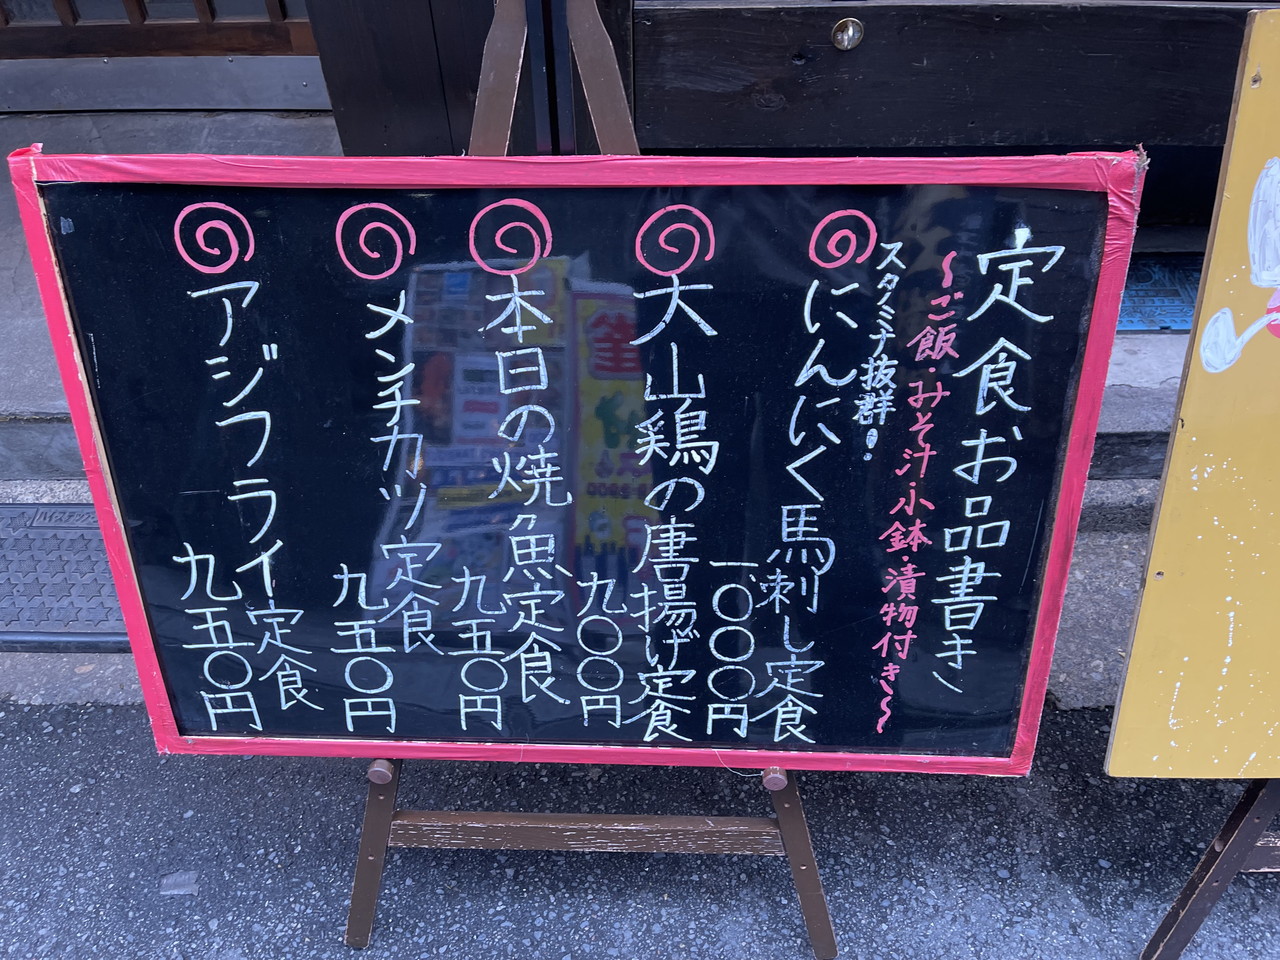 定食お品書き
〜ご飯・みそ汁・小鉢・漬物付き〜
スタミナ抜群！
にんにく馬刺し定食
一〇〇〇円
大山鶏の唐揚げ定食
九〇〇円
本日の焼魚定食
九五〇円
メンチカツ定食
九五〇円
アジフライ定食
九五〇円